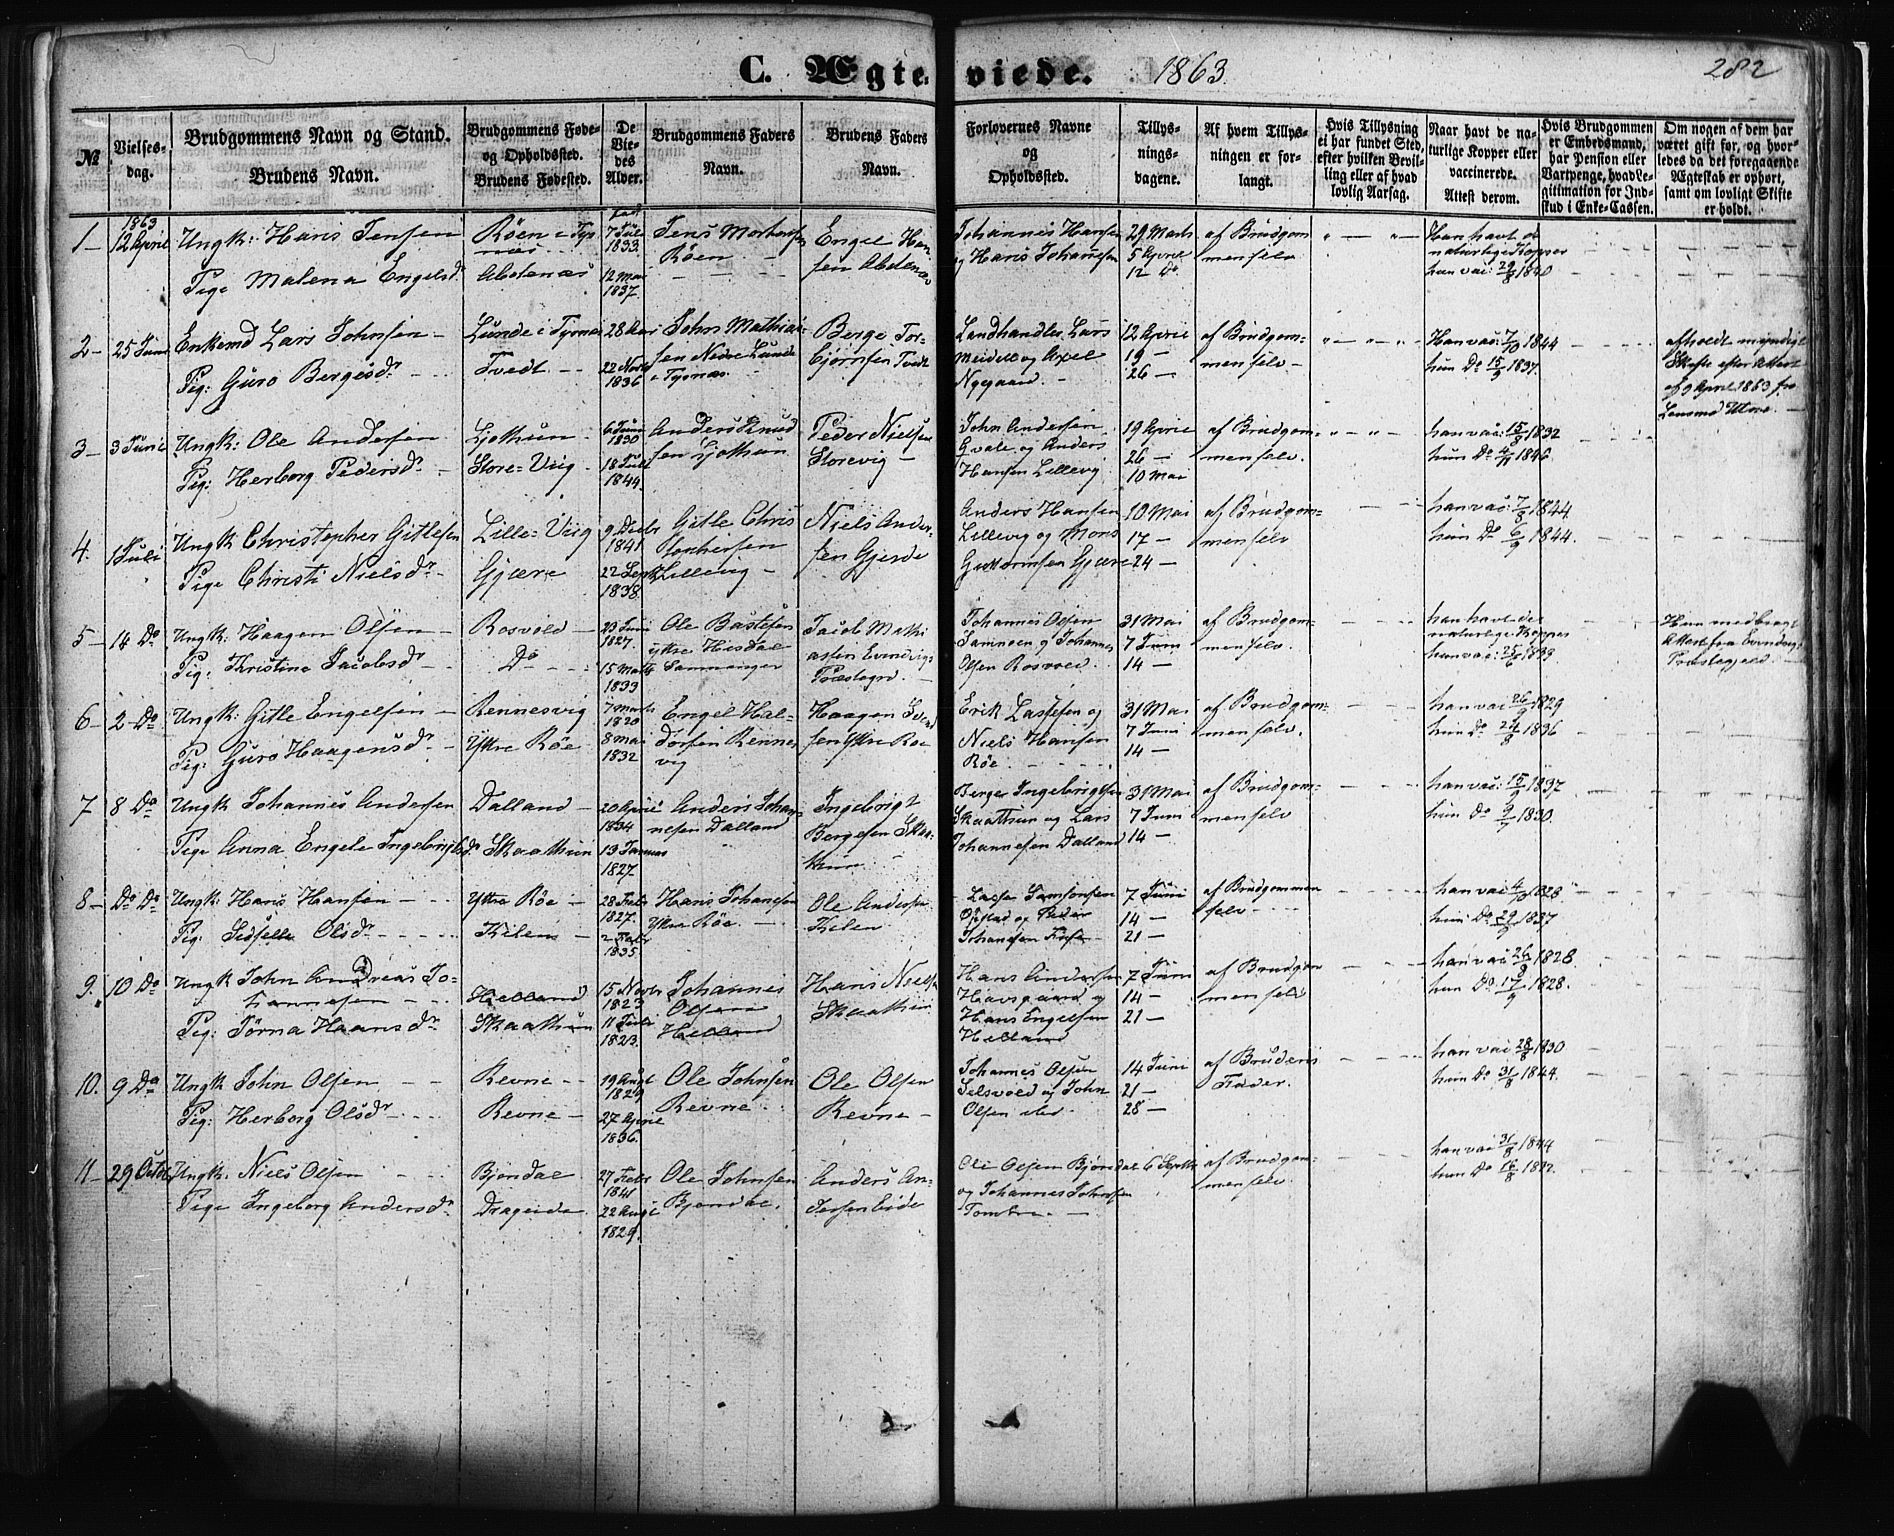 C. Ægteviede. 1863. 282
№
Vielsesdag.
Brudgommens Navn og Stand.
Brudens Navn.
Brudgommens Føde- og Opholdssted.
Brudens Fødested.
De Viedes Alder.
Brudgommens Faders Navn.
Brudens Faders Navn.
Forlovernes Navne og Opholdssted.
Tillysningsdagene.
Af hvem Tillysningen er forlangt.
Hvis Tillysning ei har fundet Sted, efter hvilken Bevilling eller af hvad lovlig Aarsag.
Naar havt de naturlige Kopper eller vaccinerede. Attest derom.
Hvis Brudgommen er Embedsmand, har Pension eller Vartpenge, hvad Legitimation for Indskud i Enke-Cassen.
Om nogen af dem har været gift før, og hvorledes da det foregaaende Ægteskab er ophørt, samt om lovligt Skifte er holdt.
1863
1 – 12 April Ungk: Hans Jensen Røen i Tys 7 Juli 1833. Jens Mortensen Røen Engel Hansen Johannes Hansen og Hans Johansen 29 Marts 5 April 12 Do af Brudgommen selv Han havt de naturlige Kopper
Pige Malena Engelsdr 12 Mai 1837. hun vac: 29/8 1840
2 – 25 Juni Enkemd Lars Johnsen – Lunde i Tysnæs 28 Aar John Mathiassen Nedre Lunde i Tysnæs Berge Torbjørnsen Tvedt Landhandler Lars Meidell og Axel Nygaard 12 April 19 – 26 – af Brudgommen selv – Han vac: 1844
Pig: Guro Bergesdr Tvedt 22 Novbr 1836 hun Do 15/9 1837. afholdt myndigt Skifte efter Attest af 9 April 1863 fra Lensmd Utne
3 – 3 Juni Ungk: Ole Andersen Ljothun 6 Juni 1830 Anders Knudsen Ljothun Peder Nielsen Storevig – John Andersen Qvale og Anders Hansen Lillevig 19 April 26 – 10 Mai af Brudgommen selv. han vac: 15/8 1832
Pig: Herborg Pedersdr Store-Viig 18 Juli 1844. hun Do 1846.
4. 1 Juli Ungk Christopher Gitlesen Lille-Viig 9 Decbr 1841 Gitle Christophersen Lillevig – Niels Andersen Gjerde Anders Hansen Lillevig og Mons Guttormsen Gjære 10 Mai 17 – 24 – af Brudgommen selv han vac: 7/8 1844
Pige Christi Nielsdr Gjære 22 Septbr 1838. hun Do 6/9 1844.
5 – 14 Do Ungk: Haagen Olsen Rosvold 23 Juni 1827. Ole Bastesen ytre Hisdal Samnanger Jacob Mathiassen Evindvigs Præstegd. Johannes Olsen Samnøen og Johannes Olsen Rosvold 31 Mai 7 Juni 14 – af Brudgommen selv. han havt de naturlige Kopper
Pig: Kristine Jacobsdr Do 15 Marts 1833 hun vac: 25/6 1833 Hun medbragt Attest fra Evindvigs Præstegjeld
6 – 2 Do Ungk: Gitle Engelsen Rennesvig 7 Marts 1820 Engel Haldorsen Rennesvig Haagen Ytre Røe Erik Lassesen og Niels Hansen Røe 31 Mai 7 Juni 14 – af Brudgommen selv. han vac 26/9 1829
Pig: Guro Haagensdr Ytre Røe 8 Mai 1832 hun Do 24/8 1836
7 8 Do Ungk Johannes Andersen Dalland 20 April 1834 Anders Johannesen Dalland Ingebrigt Bergesen Skaathun Berge Ingebrigtsen Skaathun og Lars Johannesen Dalland 31 Mai 7 Juni 14 – af Brudgommen selv. han vac: 15/9 1837
Pige Anna Engele Ingebrigtsdr Skaathun 13 Januar 1827. hun Do 1830.
8 – Do Do Ungk: Hans Hansen Ytre Røe 28 Febr 1827. Hans Johansen Ytre Røe Ole Andersen Kilen Lasse Samsonsen Opstad og Peder Johansen 7 Juni 14 – 21 – af Brudgommen selv han vac 1828
Pig: Sidselle Olsdr Kilen 2 Febr 1835. hun Do 29/9 1837
9. 10 Do Ungk John Andreas Johannesen Helland 15 Novbr 1823 Johannes Olsen Helland Hans Nielsen Skaathun Hans Andersen Havsgaard og Hans Engelsen Helland 7 Juni 14 – 21 – af Brudgommen selv han vac 26/8 1828
Pig: Jørna Haansdr Skaathun 11 Juli 1823. hun Do 17/9 1828.
10. 9 Do Ungk John Olsen Revne 19 Augt 1829 Ole Johnsen Revne Ole Olsen Revne – Johannes Olsen Selsvold og John Olsen 14 Juni 21 – 28 – af Brudens Fader. han vac 28/8 1830
Pig: Herborg Olsdr Revne 27 April 1836. hun Do 31/8 1844.
11 – 29 Octbr Ungk: Niels Olsen Bjøndal 27 Febr 1841 Ole Johnsen Bjøndal. Anders Andersen Eide Ole Olsen Bjøndal og Johannes Johnsen Tombre 6 Septbr af Brudgommen selv. han vac 31/8 1844
Pige Ingeborg Andersdr Drageide 22 Augt 1829. hun Do